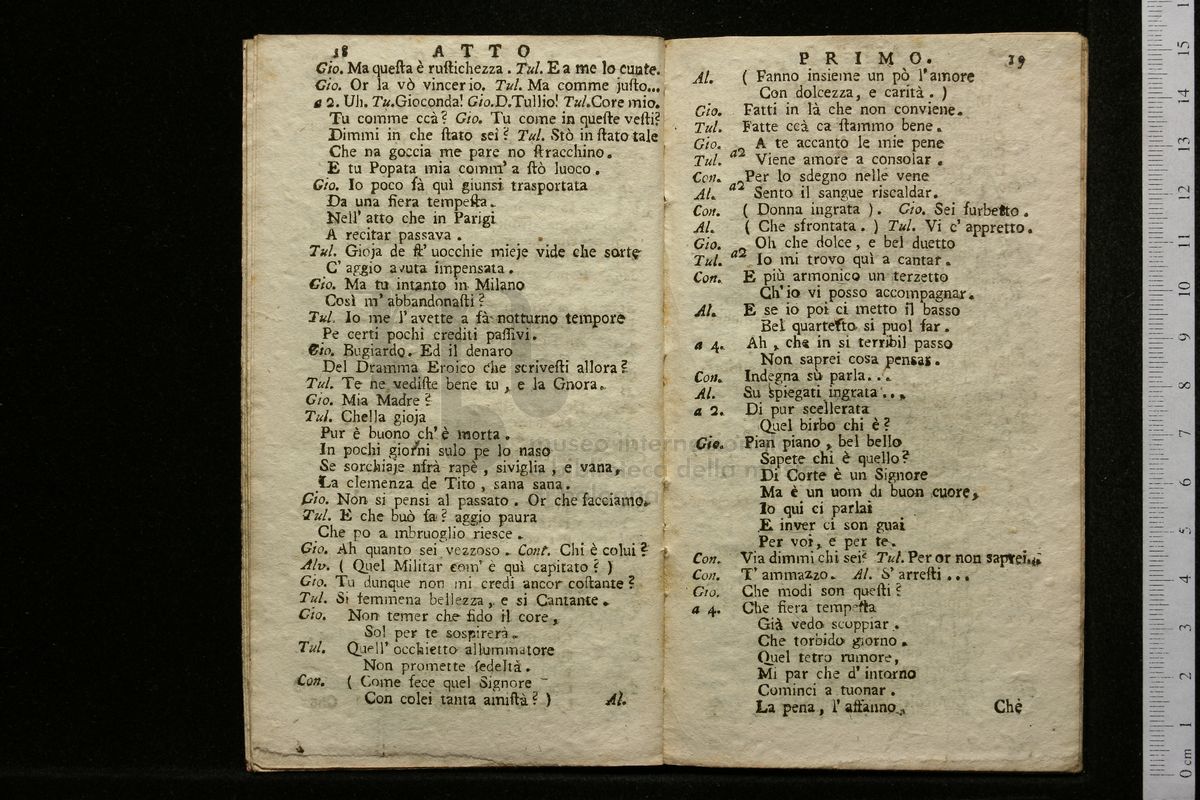 18 ATTO
Gio. Ma queſta è ruſtichezza. Tul. E a me lo cunte.
Gio. Or la vò vincerio. Tul. Ma comme juſto...
a 2. Uh. Tu. Gioconda! Gio. D. Tullio! Tul. Core mio.
Tu comme ccà? Gio. Tu come in queſte veſti?
Dimmi in che ſtato sei? Tul. Stò in ſtato tale
Che na goccia me pare no ſtracchino.
E tu Popata mia comm' a ſtò luoco.
Gio. Io poco fà quì giunsi trasportata
Da una fiera tempeſta.
Nell' atto che in Parigi
A recitar passava.
Tul. Gioja de ſt' uocchie mieje vide che sorte
C' aggio avuta impensata.
Gio. Ma tu intanto in Milano
Così m' abbandonaſti?
Tul. Io me l' avette a fà notturno tempore
Pe certi pochi crediti paſſivi.
Gio. Bugiardo. Ed il denaro
Del Dramma Eroico che scriveſti allora?
Tul. Te ne vediſte bene tu, e la Gnora.
Gio. Mia Madre?
Tul. Chella gioja
Pur è buono ch' è morta.
In pochi giorni sulo pe lo naso
Se sorchiaje nfrà rapè, siviglia, e vana,
La clemenza de Tito, sana sana.
Gio. Non si pensi al passato. Or che facciamo.
Tul. E che buò fa? aggio paura
Che po a mbruoglio riesce.
Gio. Ah quanto sei vezzoso. Cont. Chi è colui?
Alv. ( Quel Militar com' è quì capitato? )
Gio. Tu dunque non mi credi ancor coſtante?
Tul. Si femmena bellezza, e si Cantante.
Gio. Non temer che fido il core,
Sol per te sospirerà.
Tul. Quell' occhietto allumınatore
Non promette fedeltà.
Con. ( Come fece quel Signore
Con colei tanta amiſtà? ) Al.
PRIMO. 19
Al. ( Fanno insieme un pò l'amore
Con dolcezza, e carità. )
Gio. Fatti in là che non conviene.
Tul. Fatte ccà ca ſtammo bene.
Gio. a2 A te accanto le mie pene
Tul. Viene amore a consolar.
Con. a2 Per lo sdegno nelle vene
Al. Sento il sangue riscaldar.
Con. ( Donna ingrata ). Gio. Sei furbetto.
Al. ( Che sfrontata. ) Tul. Vi c' appretto.
Gio. a2 Oh che dolce, e bel duetto
Tul. Io mi trovo quì a cantar.
Con. E più armonico un terzetto
Ch'io vi posso accompagnar.
Al. E se io poi ci metto il basso
Bel quartetto si puol far.
a 4. Ah, che in si terribil passo
Non saprei cosa pensar.
Con. Indegna sù parla...
Al. Su spiegati ingrata...
a 2. Di pur scellerata
Quel birbo chi è?
Gio. Pian piano, bel bello
Sapete chi è quello?
Di Corte è un Signore
Ma è un uom di buon cuore,
Io qui ci parlai
E inver ci son guai
Per voi, e per te.
Con. Via dimmi chi sei? Tul. Per or non saprei...
Con. T' ammazzo. Al. S' arreſti...
Gio. Che modi son queſti?
a 4. Che fiera tempeſta
Già vedo scoppiar.
Che torbido giorno.
Quel tetro rumore,
Mi par che d' intorno
Cominci a tuonar.
La pena, l' affanno, Chè